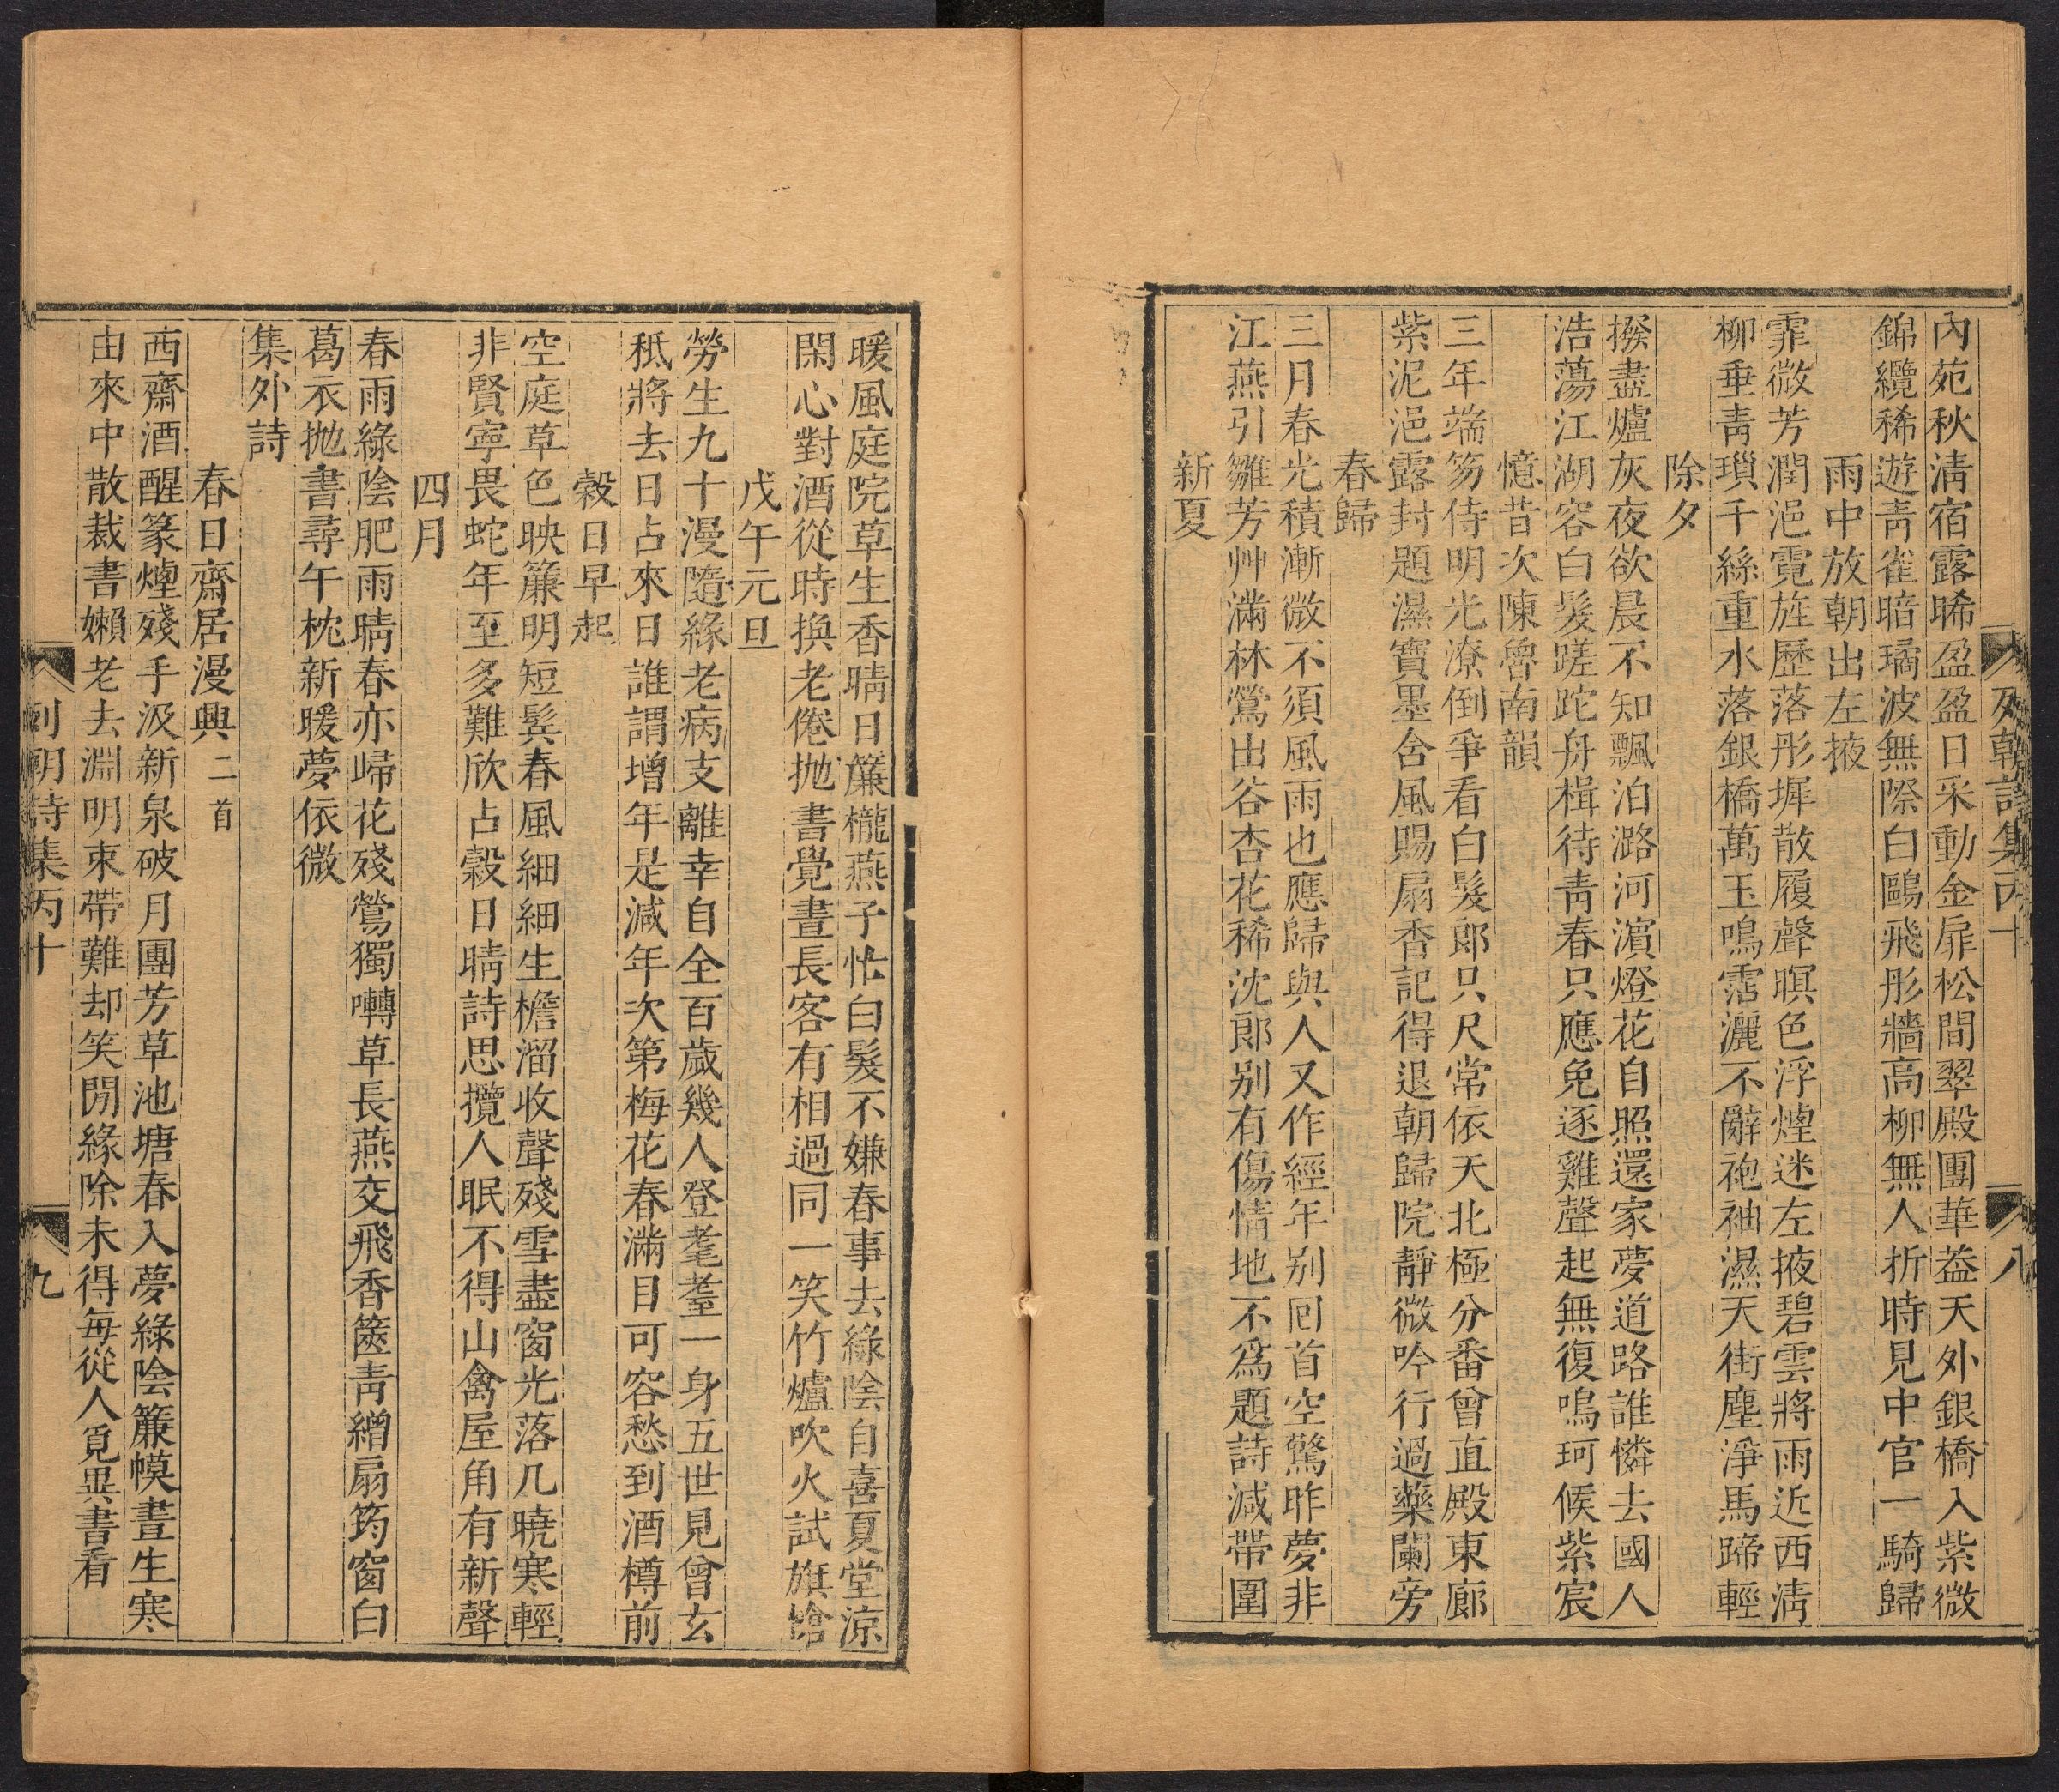 列朝詩集丙十
八
內苑秋淸宿露晞盈盈日采動金扉松間翠殿團華葢天外銀橋入紫微
錦纜稀遊靑雀暗璚波無際白鷗飛彤牆高柳無人折時見中官一騎歸
雨中放朝出左掖
霏微芳潤浥霓旌歷落彤墀散履聲暝色浮煙迷左掖碧雲將雨近西淸
柳垂靑瑣千絲重水落銀橋萬玉鳴霑灑不辭袍袖濕天街塵淨馬蹄輕
除夕
撥盡爐灰夜欲晨不知飄泊潞河濵燈花自照還家夢道路誰憐去國人
浩蕩江湖容白髮蹉跎舟楫待靑春只應免逐雞聲起無復鳴珂候紫宸
憶昔次陳魯南韻
三年端笏侍明光潦倒爭看白髮郎只尺常依天北極分番曾直殿東廊
紫泥浥露封題濕寶墨含風賜扇香記得退朝歸院靜微吟行過藥闌旁
春歸
三月春光積漸微不須風雨也應歸與人又作經年别囘首空驚昨夢非
江燕引雛芳艸滿林鶯出谷杏花稀沈郎别有傷情地不爲題詩減帶圍
新夏
暖風庭院草生香晴日簾櫳燕子忙白髮不嫌春事去綠陰自喜夏堂涼
閑心對酒從時換老倦抛書覺晝長客有相過同一笑竹爐吹火試旗槍
戊午元旦
勞生九十漫隨緣老病支離幸自全百歲幾人登耄耋一身五世見曾玄
秪將去日占來日誰謂增年是減年次第梅花春滿目可容愁到酒樽前
穀日早起
空庭草色映簾明短鬂春風細細生檐溜收聲殘雪盡窗光落几曉寒輕
非賢寧畏蛇年至多難欣占穀日晴詩思攪人眠不得山禽屋角有新聲
四月
春雨綠陰肥雨晴春亦歸花殘鶯獨囀草長燕交飛香篋靑繒扇筠窗白
葛衣抛書尋午枕新暖夢依微
集外詩
春日齋居漫興二首
西齋酒醒篆煙殘手汲新泉破月團芳草池塘春入夢綠陰簾幙晝生寒
由來中散裁書嬾老去淵明束帶難却笑閒緣除未得每從人覔異書看
列朝詩集丙十
九